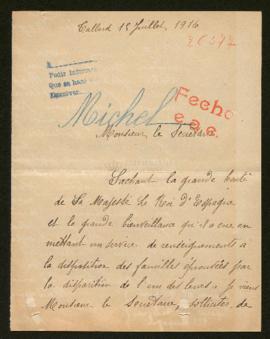 15 Juillet, 1916
Pedir
Que se
Michel
Fecho
Monsieur le Secrétaire
Sachant la grande bonté
de Sa Majesté le Roi d'Espagne
et la grande bienveillance qu'il a eue en
mettant un service de renseignements à
la disposition des familles éprouvées par
la disparition de l'un des leurs, je viens
Monsieur le Secrétaire, solliciter de